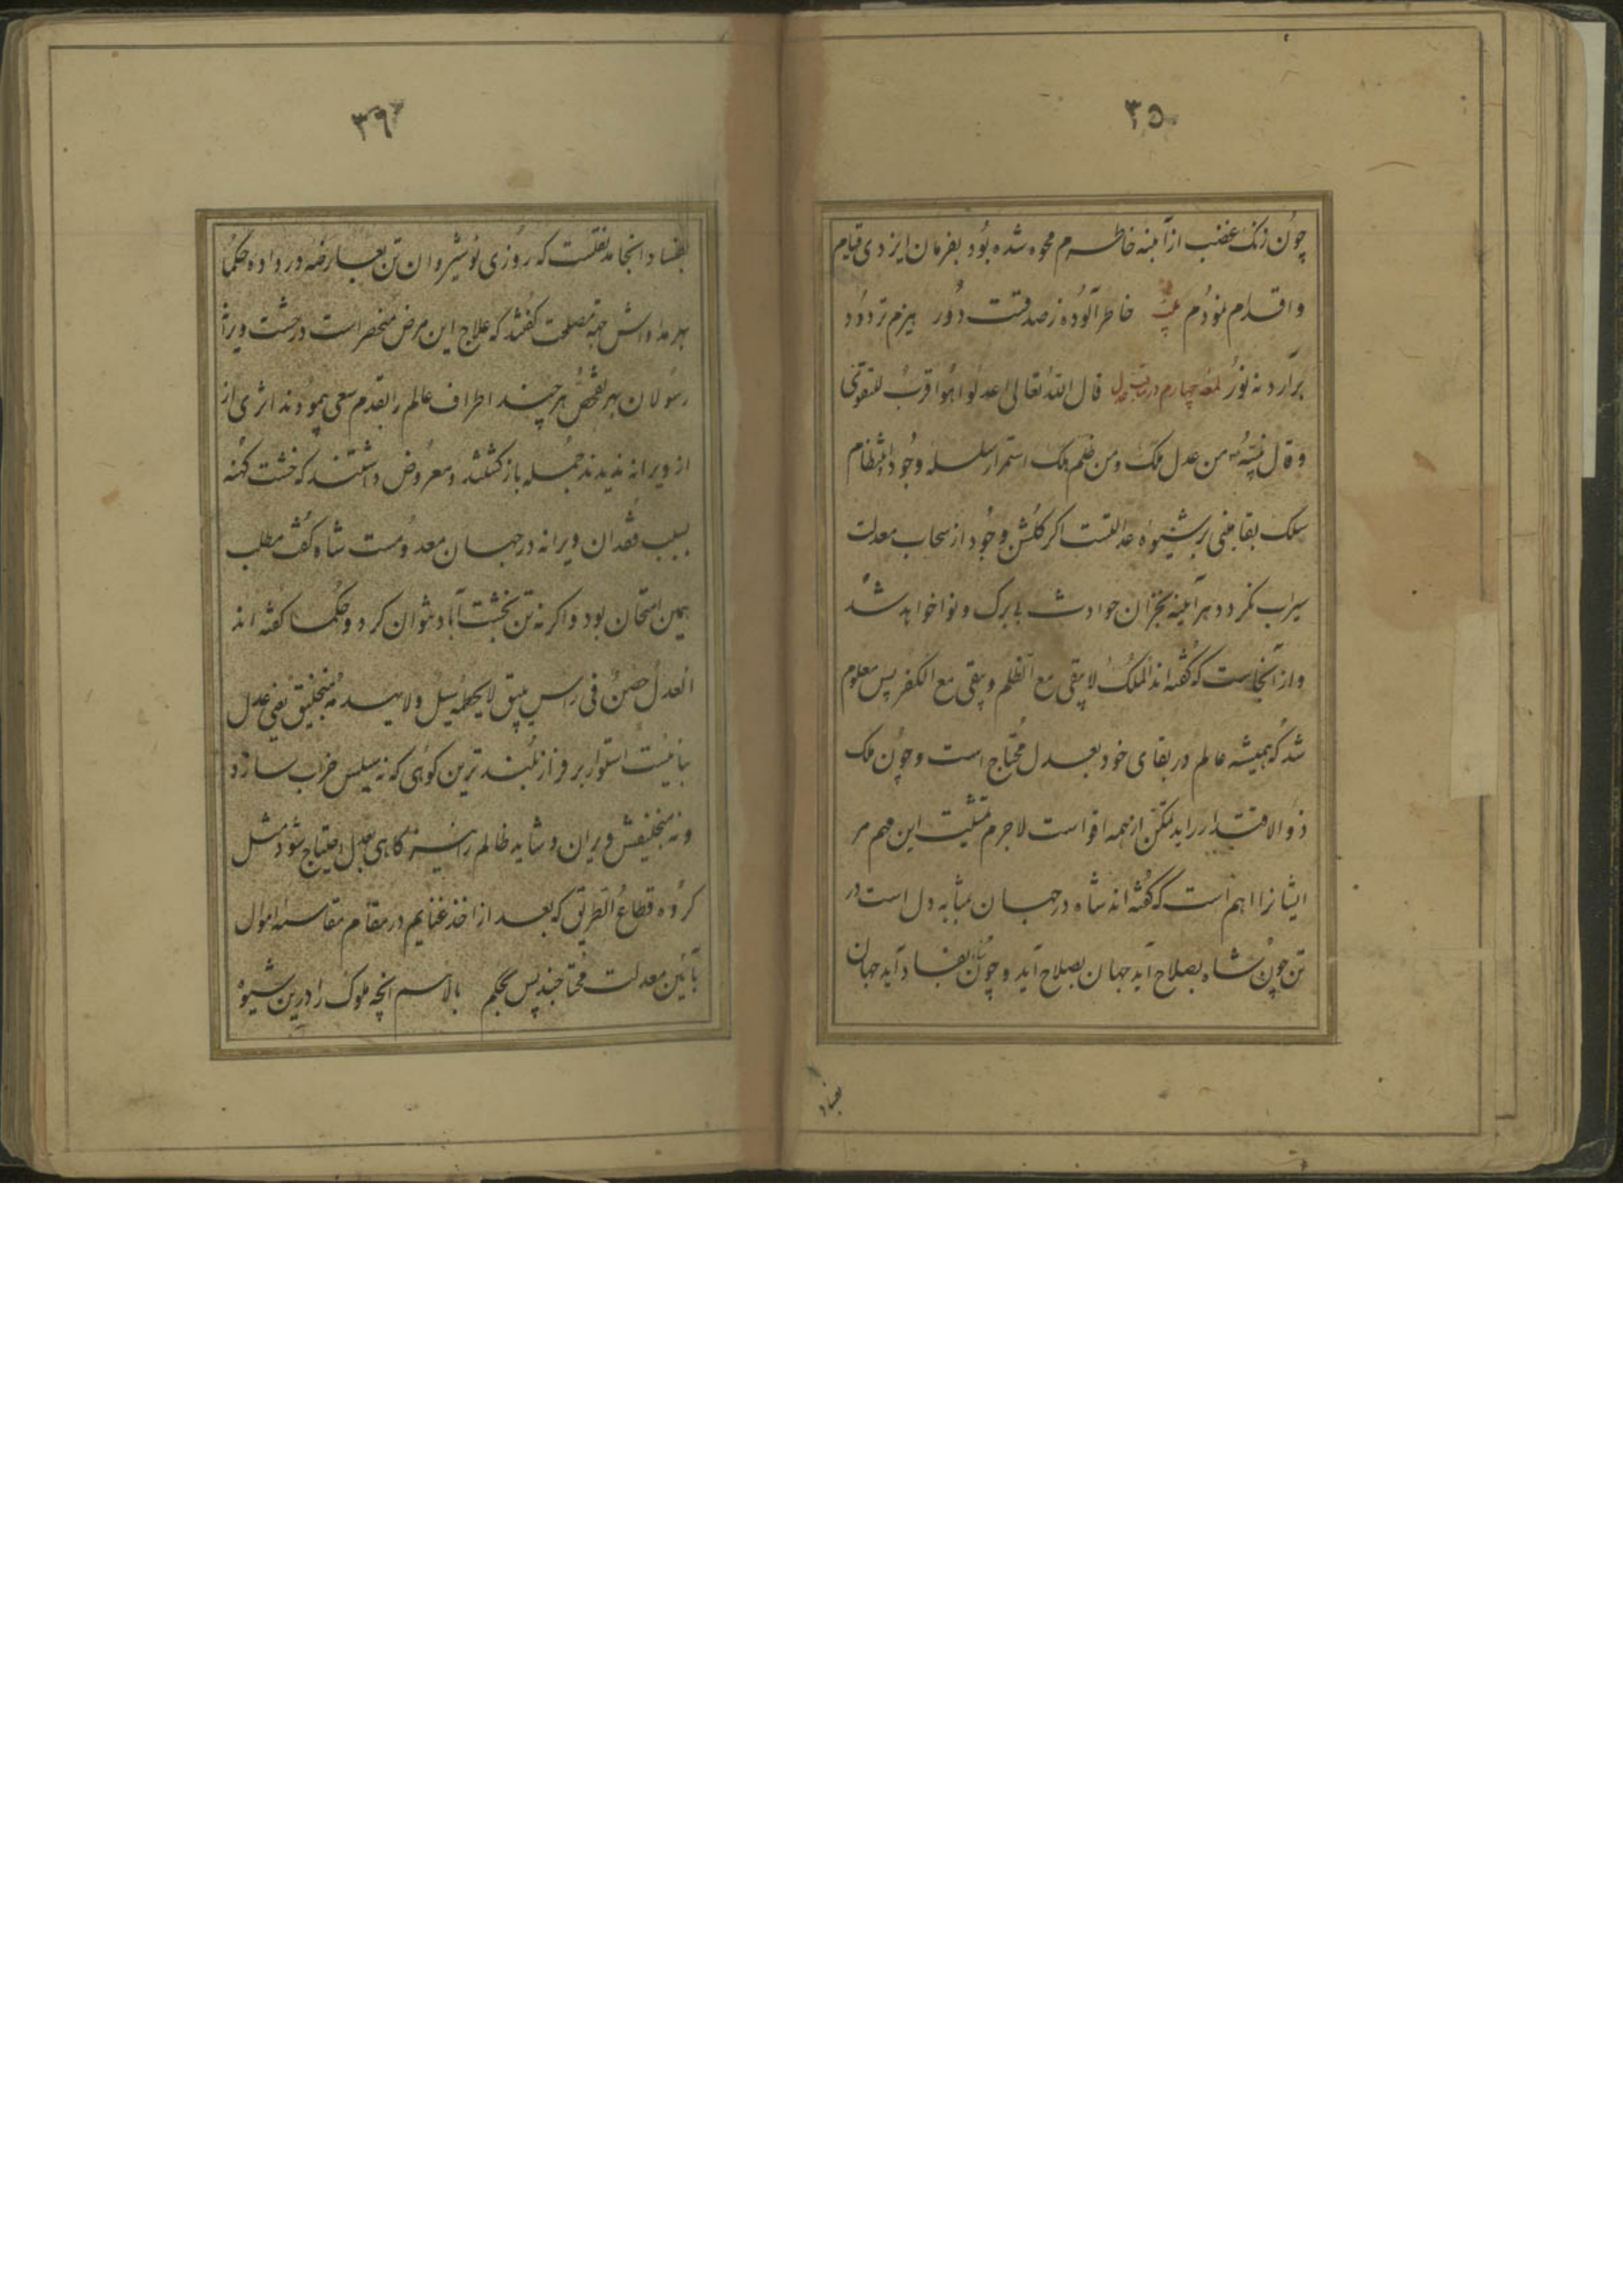 ۳۵
چون زنک غضب از آینه خاطرم محوه شده بود بفرمان ایزدی قیام
و اقدام نمودم بیت خاطر آلوده ز صدقست دور هیزم تر دود
برآرد نه نور لمعه چهارم در عدل قال الله تعالی اعدلوا هو اقرب للتقوی
و قال من عدل ملک و من ظلم هلک استمرار سلسله وجود و انتظام
سلک بقا مبنی بر شیوه عدالتست اگر کلشن وجود از سحاب معدلت
سیراب نکردد هر آینه بخزان حوادث بی برک و نوا خواهد شد
و از آنجاست که گفته اند الملک لا یبقی مع الظلم و یبقی مع الکفر پس معلوم
شد که همیشه عالم در بقای خود بعدل محتاج است و چون ملک
ذو الاقتدار را ید تمکن از همه اقواست لاجرم مشیت این مهم مر
ایشانرا اهم است که گفته اند شاه در جهان بمثابه دل است در
تن چون شاه بصلاح آید جهان بصلاح آید و چون شاه بفساد آید جهان
بفساد
۳۶
بفساد انجامد نقلست که روزی نوشیروان تن بعارضه در داده حکما
بهر مداواش مصلحت گفتند که علاج این مرض منحصر است در خشت ویرانه
رسولان بهر تفحص هر چند اطراف عالم را بقدم سعی پیمودند اثری از
از ویرانه ندیدند جمله باز کشتند و معروض داشتند که خشت کهنه
بسبب فقدان ویرانه در جهان معدومست شاه گفت مطلب
همین امتحان بود و اکر نه تن بخشت آباد نتوان کرد و حکما گفته اند
العدل حصن فی راس نیق لا یحطمه سیل و لا یهدمه منجنیق یعنی عدل
بنائیست استوار بر فراز بلندترین کوهی که نه سیلش خراب سازد
و نه منجنیقش ویران و شاید ظالم را نیز کاهی بعدل احتیاج شود مثل
کروه قطاع الطریق که بعد از اخذ غنایم در مقام مقاسمه اموال
بآئین معدلت محتاجند پس بحکم بالاسم آنچه ملوک را درین شیوه